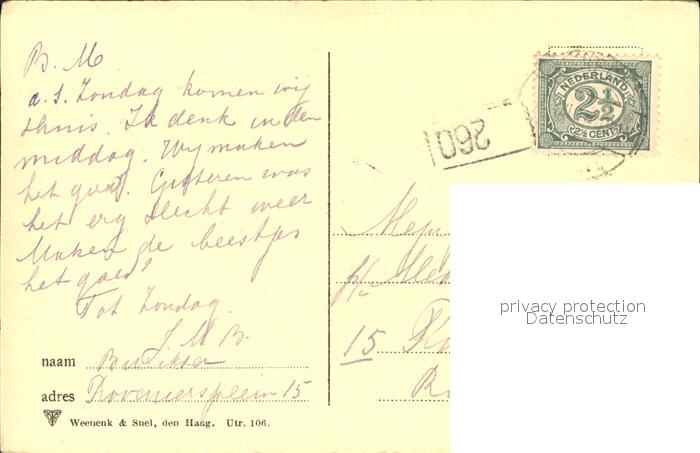 B. M
a.s. Zondag komen wij
thuis. Ik denk in den
middag. Wij maken
het goed. Gisteren was
het erg slecht weer
Maken de beestjes
het goed?
Tot Zondag.
J M B.
naam
adres Roveniersplein 15
Weenenk & Snel, den Haag. Utr. 106.
2601
NEDERLAND
2½
(2½ CENT)
p/a
15
privacy protection
Datenschutz